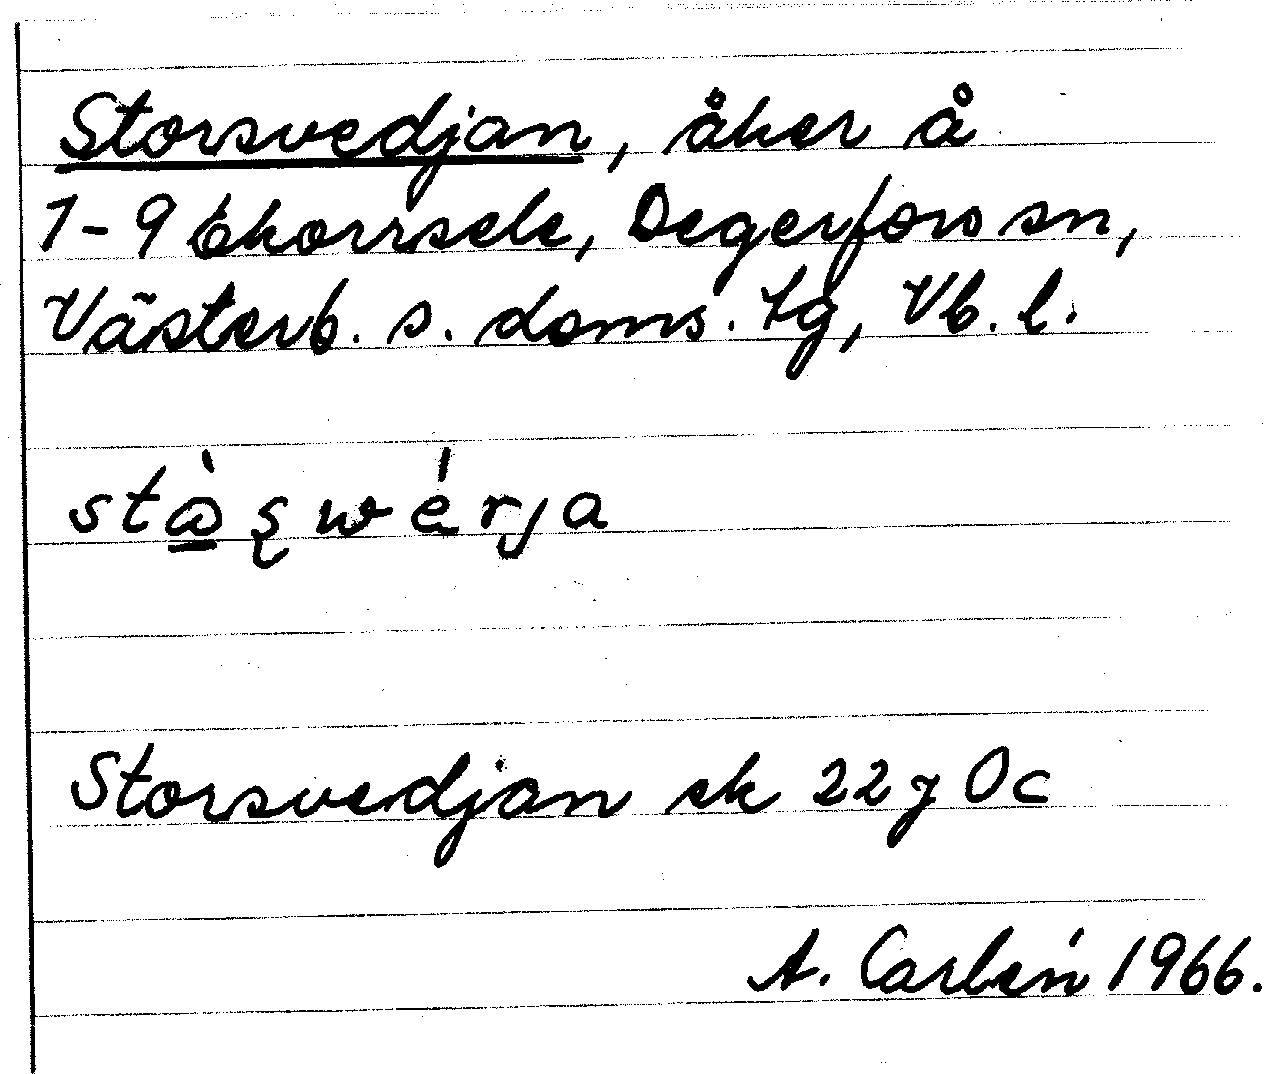 Storsvedjan, åker å
1-9 Ekorrsele, Degerfors sn,
Västerb. s. doms. tg, Vb. l.
Storsvedjan ek 22 j 0c
A. Carlén 1966.